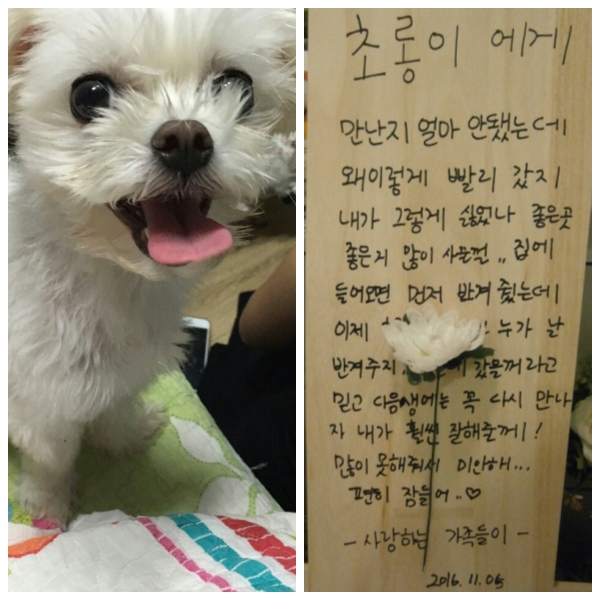 초롱이 에게
만난지 얼마 안됐는데
왜이렇게 빨리 갔지
내가 그렇게 싫었나 좋은곳
좋은거 많이 사줄껄,, 집에
들어오면 먼저 반겨 줬는데
이제 누가 날
반겨주지 갔을꺼라고
믿고 다음생에는 꼭 다시 만나
자 내가 훨씬 잘해줄께!
많이 못해줘서 미안해...
편히 잠들어..♡
- 사랑하는 가족들이 -
2016.11.05